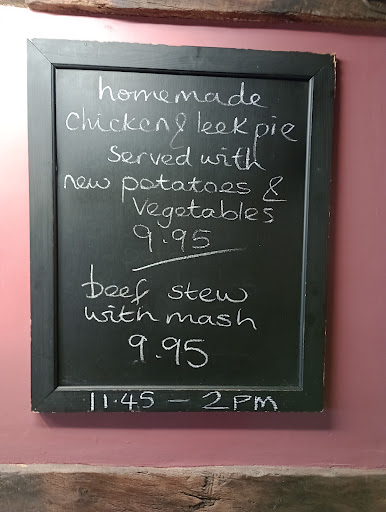 homemade
chicken & leek pie
served with
new potatoes &
vegetables
9.95
beef stew
with mash
9.95
11.45 - 2PM